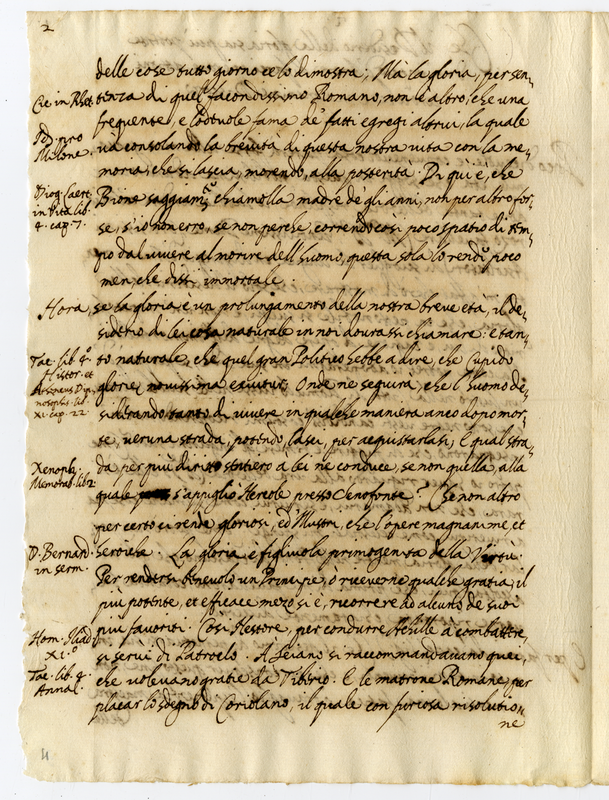 2
delle cose tutto giorno ce lo dimostra; Ma la gloria, per sen,
Cic. in Rhet.
tenza di quel facondissimo Romano, non è altro, che una
frequente, e lodevole fama de' fatti egregi altrui, la quale
Id. pro
Milone.
va consolando la brevità di questa nostra vita con la me,
moria, che si lascia, morendo, alla posterità. Di quì è, che
Diog. Laert.
in Vita lib.
4. cap. 7.
Bione saggiam.te chiamolla madre degli anni, non per altro for,
se, s'io non erro, se non perche, correndo così poco spatio di tem,
po dal vivere al morire dell'huomo, questa sola lo rende poco
men, che dissi, immortale.
Hora, se la gloria è un prolungamento della nostra breve età, il de,
siderio di lei cosa naturale in noi dourassi chiamare: e tan,
Tac. lib. 4.o
Histor. et
Atheneus Dip,
nosophis. lib.
XI. cap. 22.
to naturale, che quel gran Politico hebbe a dire, che Cupido
glorię novissima exuitur. Onde ne seguirà, che l'huomo de,
siderando tanto di vivere in qualche maniera anco dopo mor,
te, veruna strada, potendo, lasci, per acquistarlasi. E qual stra,
Xenoph.
Memorab. lib. 2.
da per più diritto sentiero à lei ne conduce, se non quella, alla
quale s'appigliò Hercole presso Xenofonte? Che non altro
per certo ci rende gloriosi, ed Illustri, che l'opere magnanime, et
D. Bernard.
in serm.
heroiche. La gloria è figliuola primogenita della Virtù.
Per rendersi benevolo un Principe, ò riceverne qualche gratia, il
più potente, et efficace mezo si è, ricorrere ad alcuno de suoi
Hom. Iliad.
XI.o
più favoriti. Così Nestore, per condurre Achille à combattere,
si servì di Patroclo. A Seiano si raccommandavano quei,
Tac. lib. 4.
Annal.
che volevano gratie da Tiberio. E le matrone Romane, per
placar lo sdegno di Coriolano, il quale con furiosa risolutio,
ne